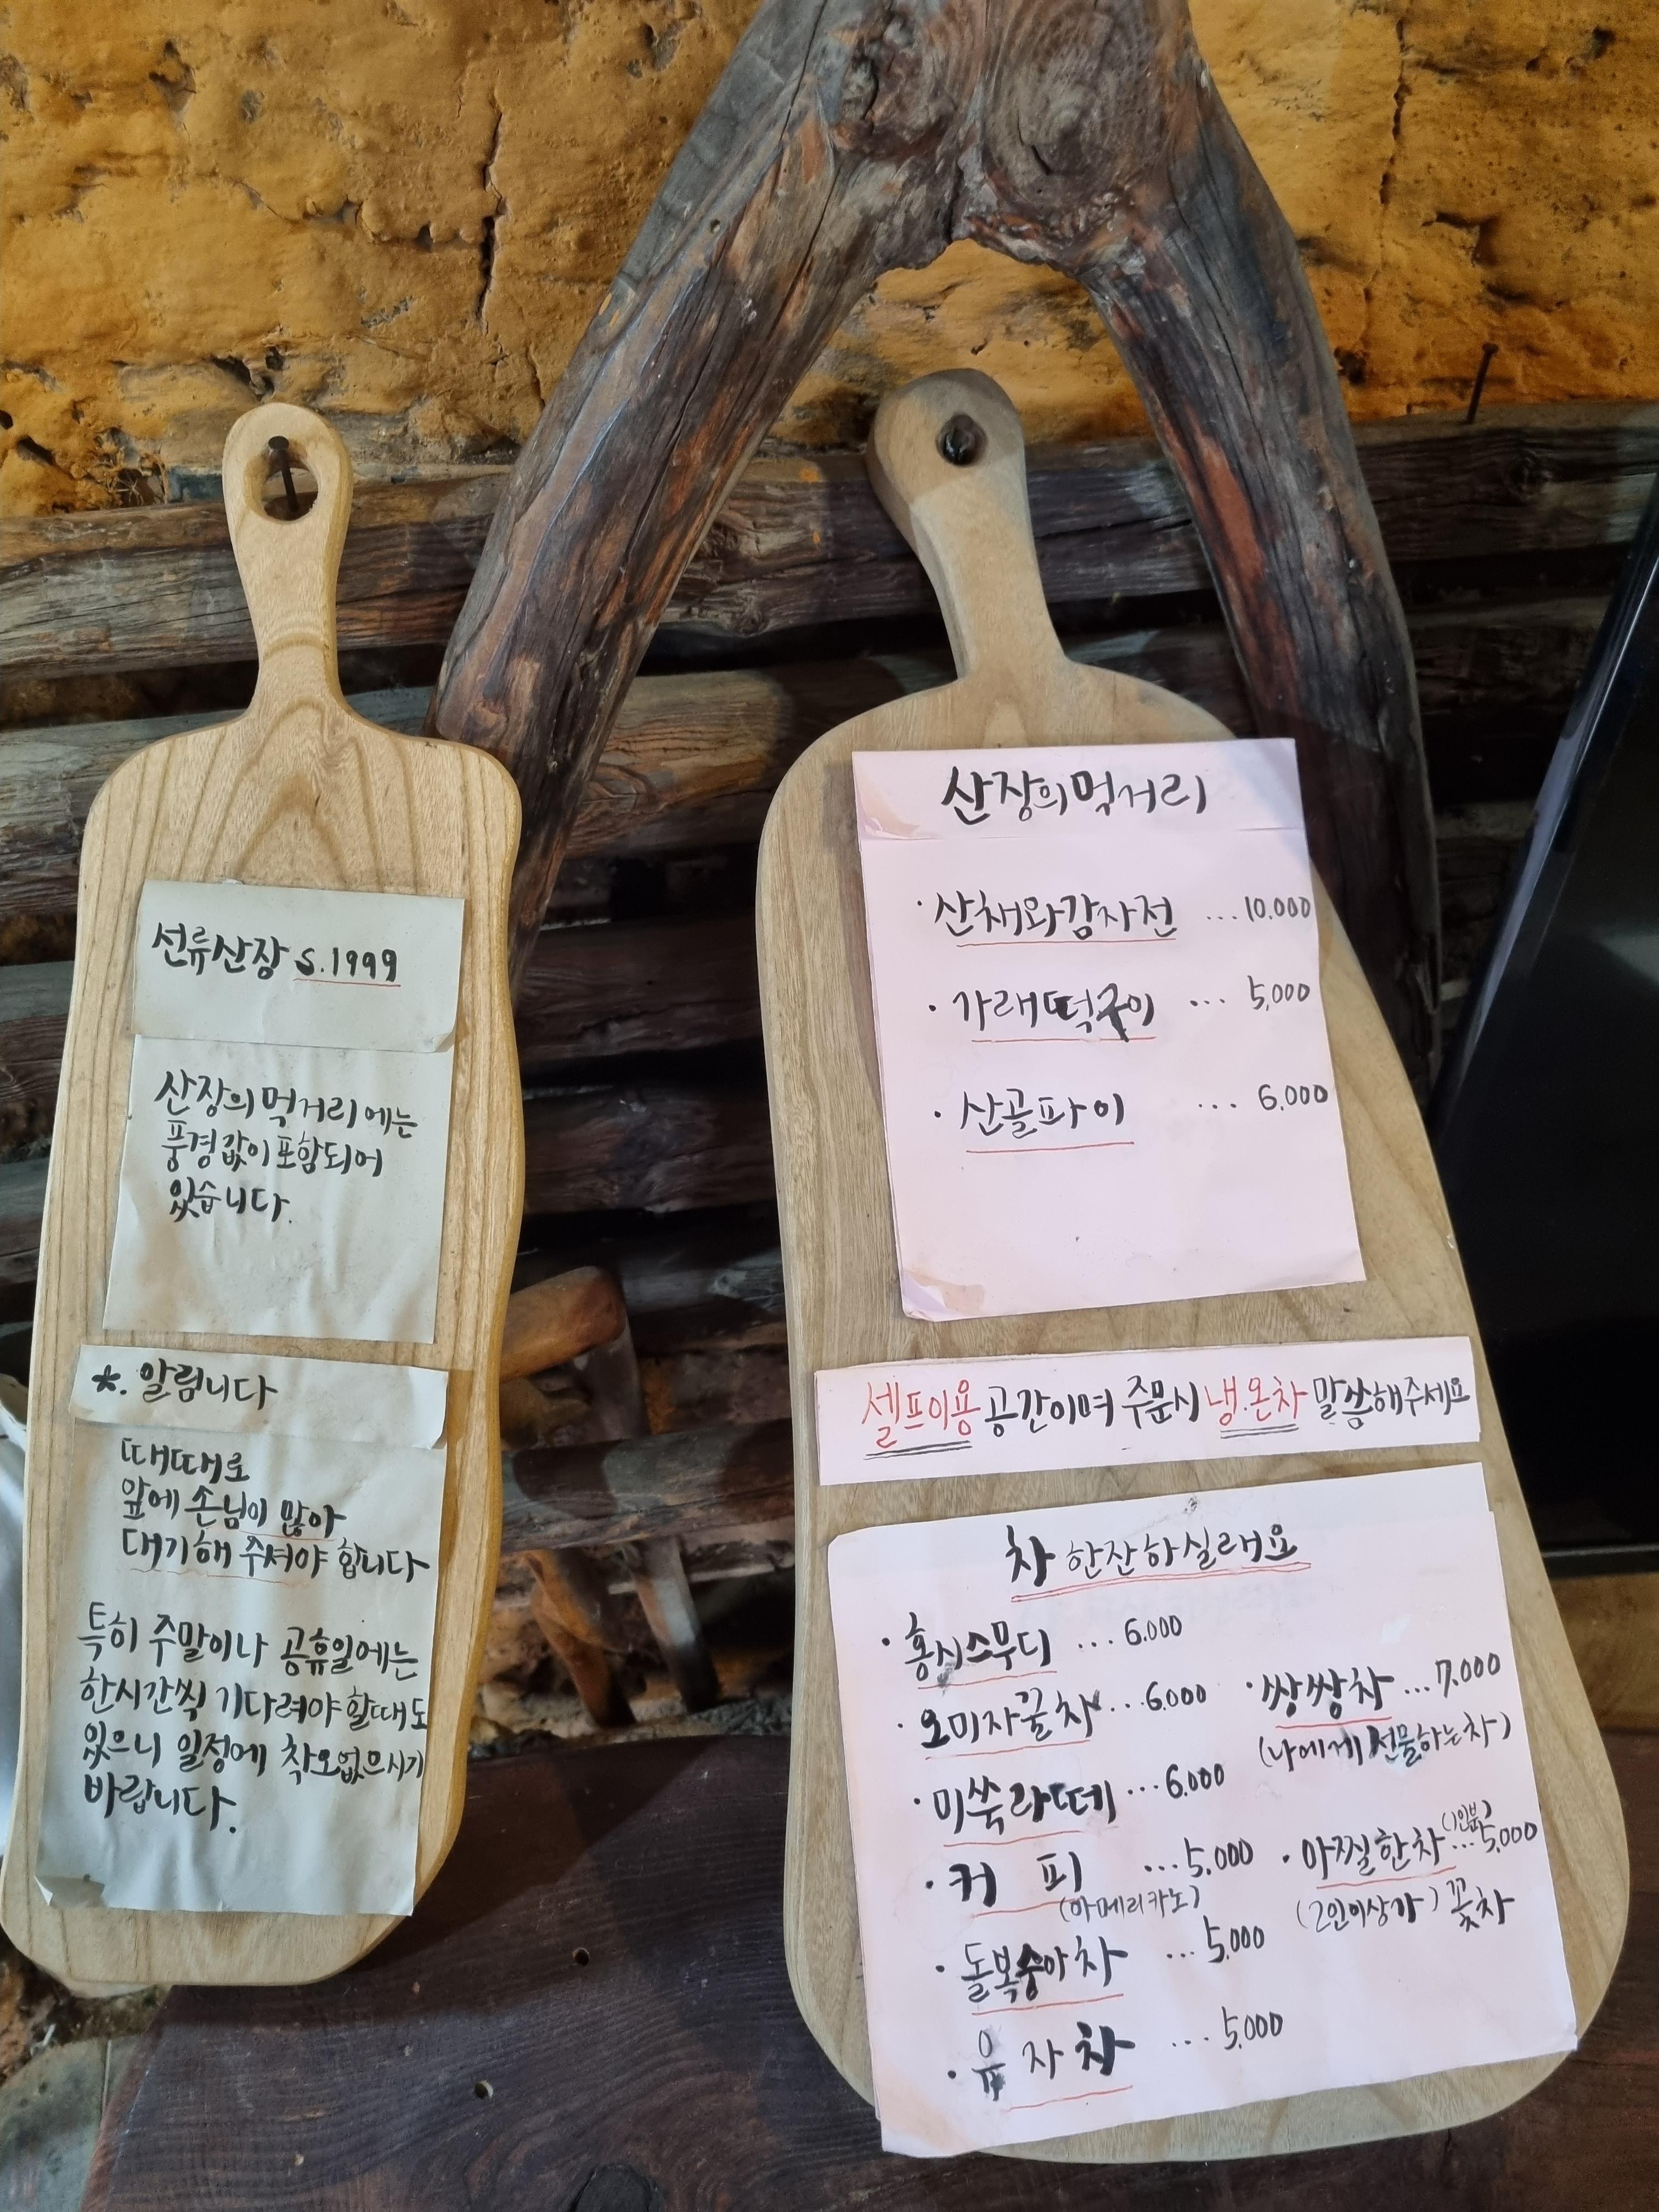 선류산장 S.1999
산장의 먹거리에는
풍경값이 포함되어
있습니다.
*. 알림니다
때때로
앞에 손님이 많아
대기해 주셔야 합니다
특히 주말이나 공휴일에는
한시간씩 기다려야 할때도
있으니 일정에 착오없으시기
바랍니다.
산장의 먹거리
· 산채와감자전 ... 10.000
· 가래떡구이 ... 5,000
· 산골파이 ... 6.000
셀프이용 공간이며 주문시 냉.온차 말씀해주세요
차 한잔하실래요
· 홍시스무디 ... 6.000
· 오미자꿀차 ... 6.000
· 미쑥라떼 ... 6.000
· 커 피 ... 5,000
(아메리카노)
· 돌복숭아차 ... 5,000
· 유자차 ... 5,000
· 쌍쌍차 ... 7.000
(나에게 선물하는차)
· 아찔한차 (1인분) ... 5,000
(2인이상가) 꽃차